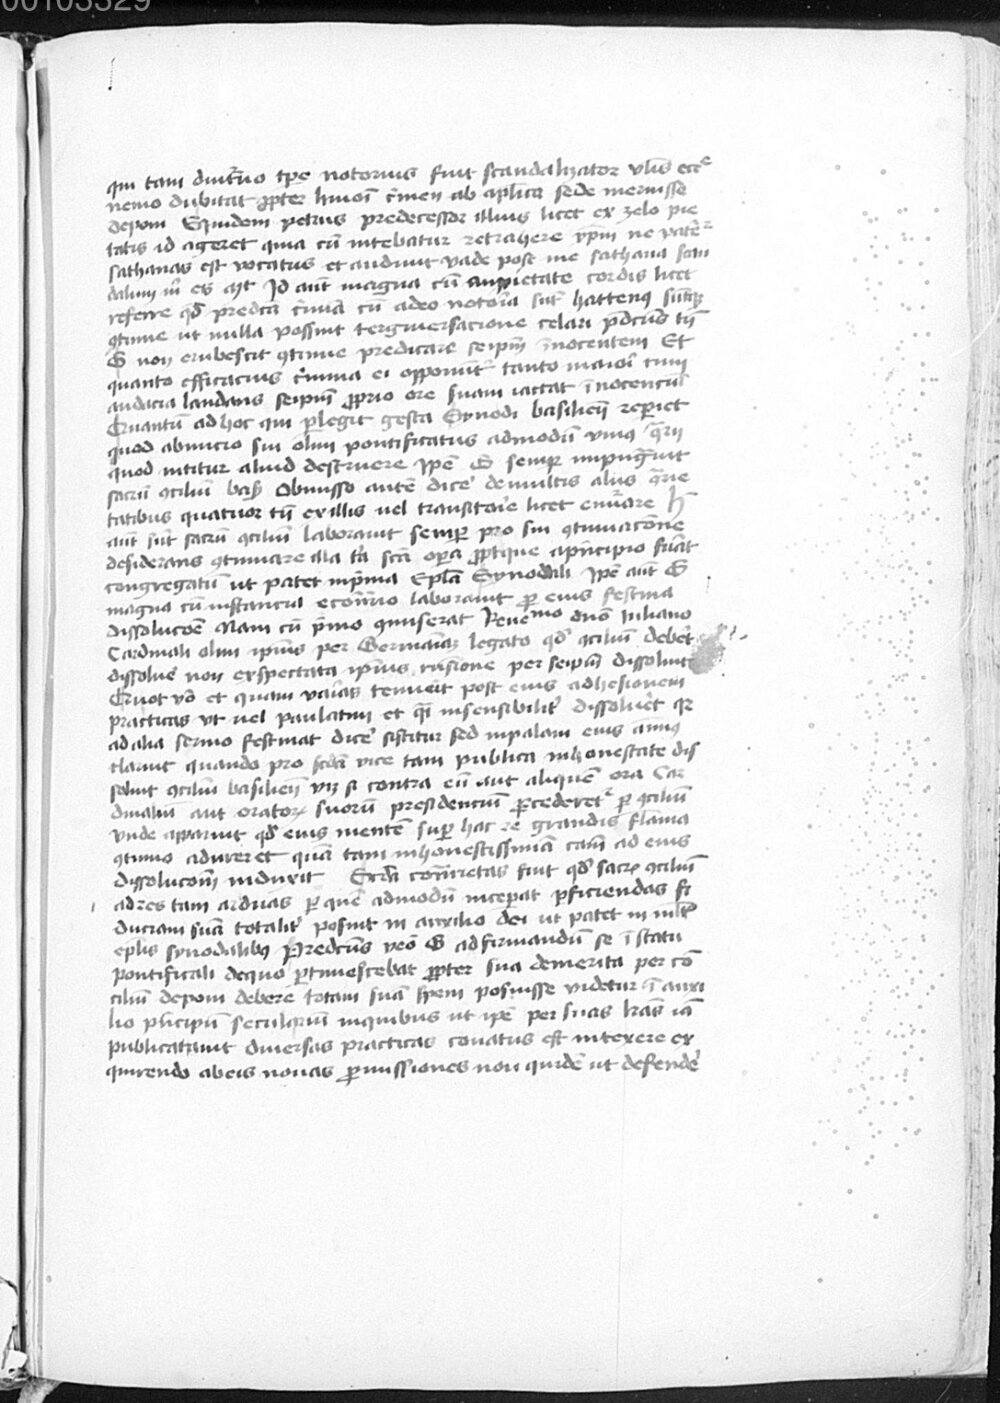 00103329
qui tam diuturno tpe notorius fuit scandalizator vlis ecce
nemo dubitat ppter huiusm crimen ab aplica sede meruisse
deponi Equidem petrus predecessor illius licet ex zelo pie
tatis id ageret quia cu nitebatur retrahere xpm ne pater
sathanas est vocatus et audiuit vade post me sathana scan
dalum m es Id aut magna cu anxietate cordis licet
referre qd predca crimina cu adeo notoria sut hactenus
gtinue ut nulla possint tergiuersacione celari pdcus tn
G non erubescit gtinue predicare seipm inocentem Et
quanto efficacius crimina ei opponunt tanto maiori cum
audacia laudans seipm pprio ore suam iactat inocencia
Quantu ad hoc qui plegit gesta Synodi basilien reperiet
quod ab inicio sui olim pontificatus admodu vnius
quod nititur aliud destruere ipe G semp impugnauit
sacru gciliu bas Obmisso aute dice de multis aliis
tatibus quatuor tn ex illis vel transitorie licet enarrare h
aut sut sacru gciliu laborauit semper pro sui gtinuacone
desiderans gtinuare illa ta sca opa pptque a principio fuat
congregatu ut patet in prima Epla Synodali ipe aut G
magna cu instancia econtrario laborauit p eius festina
dissolucoe Nam cu primo gmiserat Reuemo dno Iuliano
Cardinali olim ipius per Germaniaz legato qd gciliu deberet
dissolue non exspectata ipius rusione per seipm dissoluit
Quot vo et quam varias tenuerit post eius adhesionem
practicas vt vel paulatim et qi insensibilit dissoluet qr
ad alia sermo festinat dice sistitur sed in palam eius animus
claruit quando pro scda vice tam publica inhonestate dis
soluit gciliu basilien vz si contra eu aut aliquem ora Car
dinaliu aut orator suoru presidenciu pcederetr p gciliu
vnde aparuit qd eius mente sup hac re grandis flama
gtinuo adureret qua tam inhonestissima cam ad eius
dissolucom induxit Ecia contrietas fuit qd sacr gciliu
ad res tam arduas p que admodu inceperat pficiendas fi
duciam sua totalit posuit in auxilio dei ut patet in mlt
eplis synodalibus Predcus vero G ad firmandu se i statu
pontificali de quo ptimescebat ppter sua demerita per co
ciliu deponi debere totam sua spem posuisse videtur i auxi
lio pncipu seculariu in quibus ut ipe per suas lras ia
publicatauit diuersas practicas conatus est intexere ex
quirendo ab eis nouas pmissiones non quide ut defende